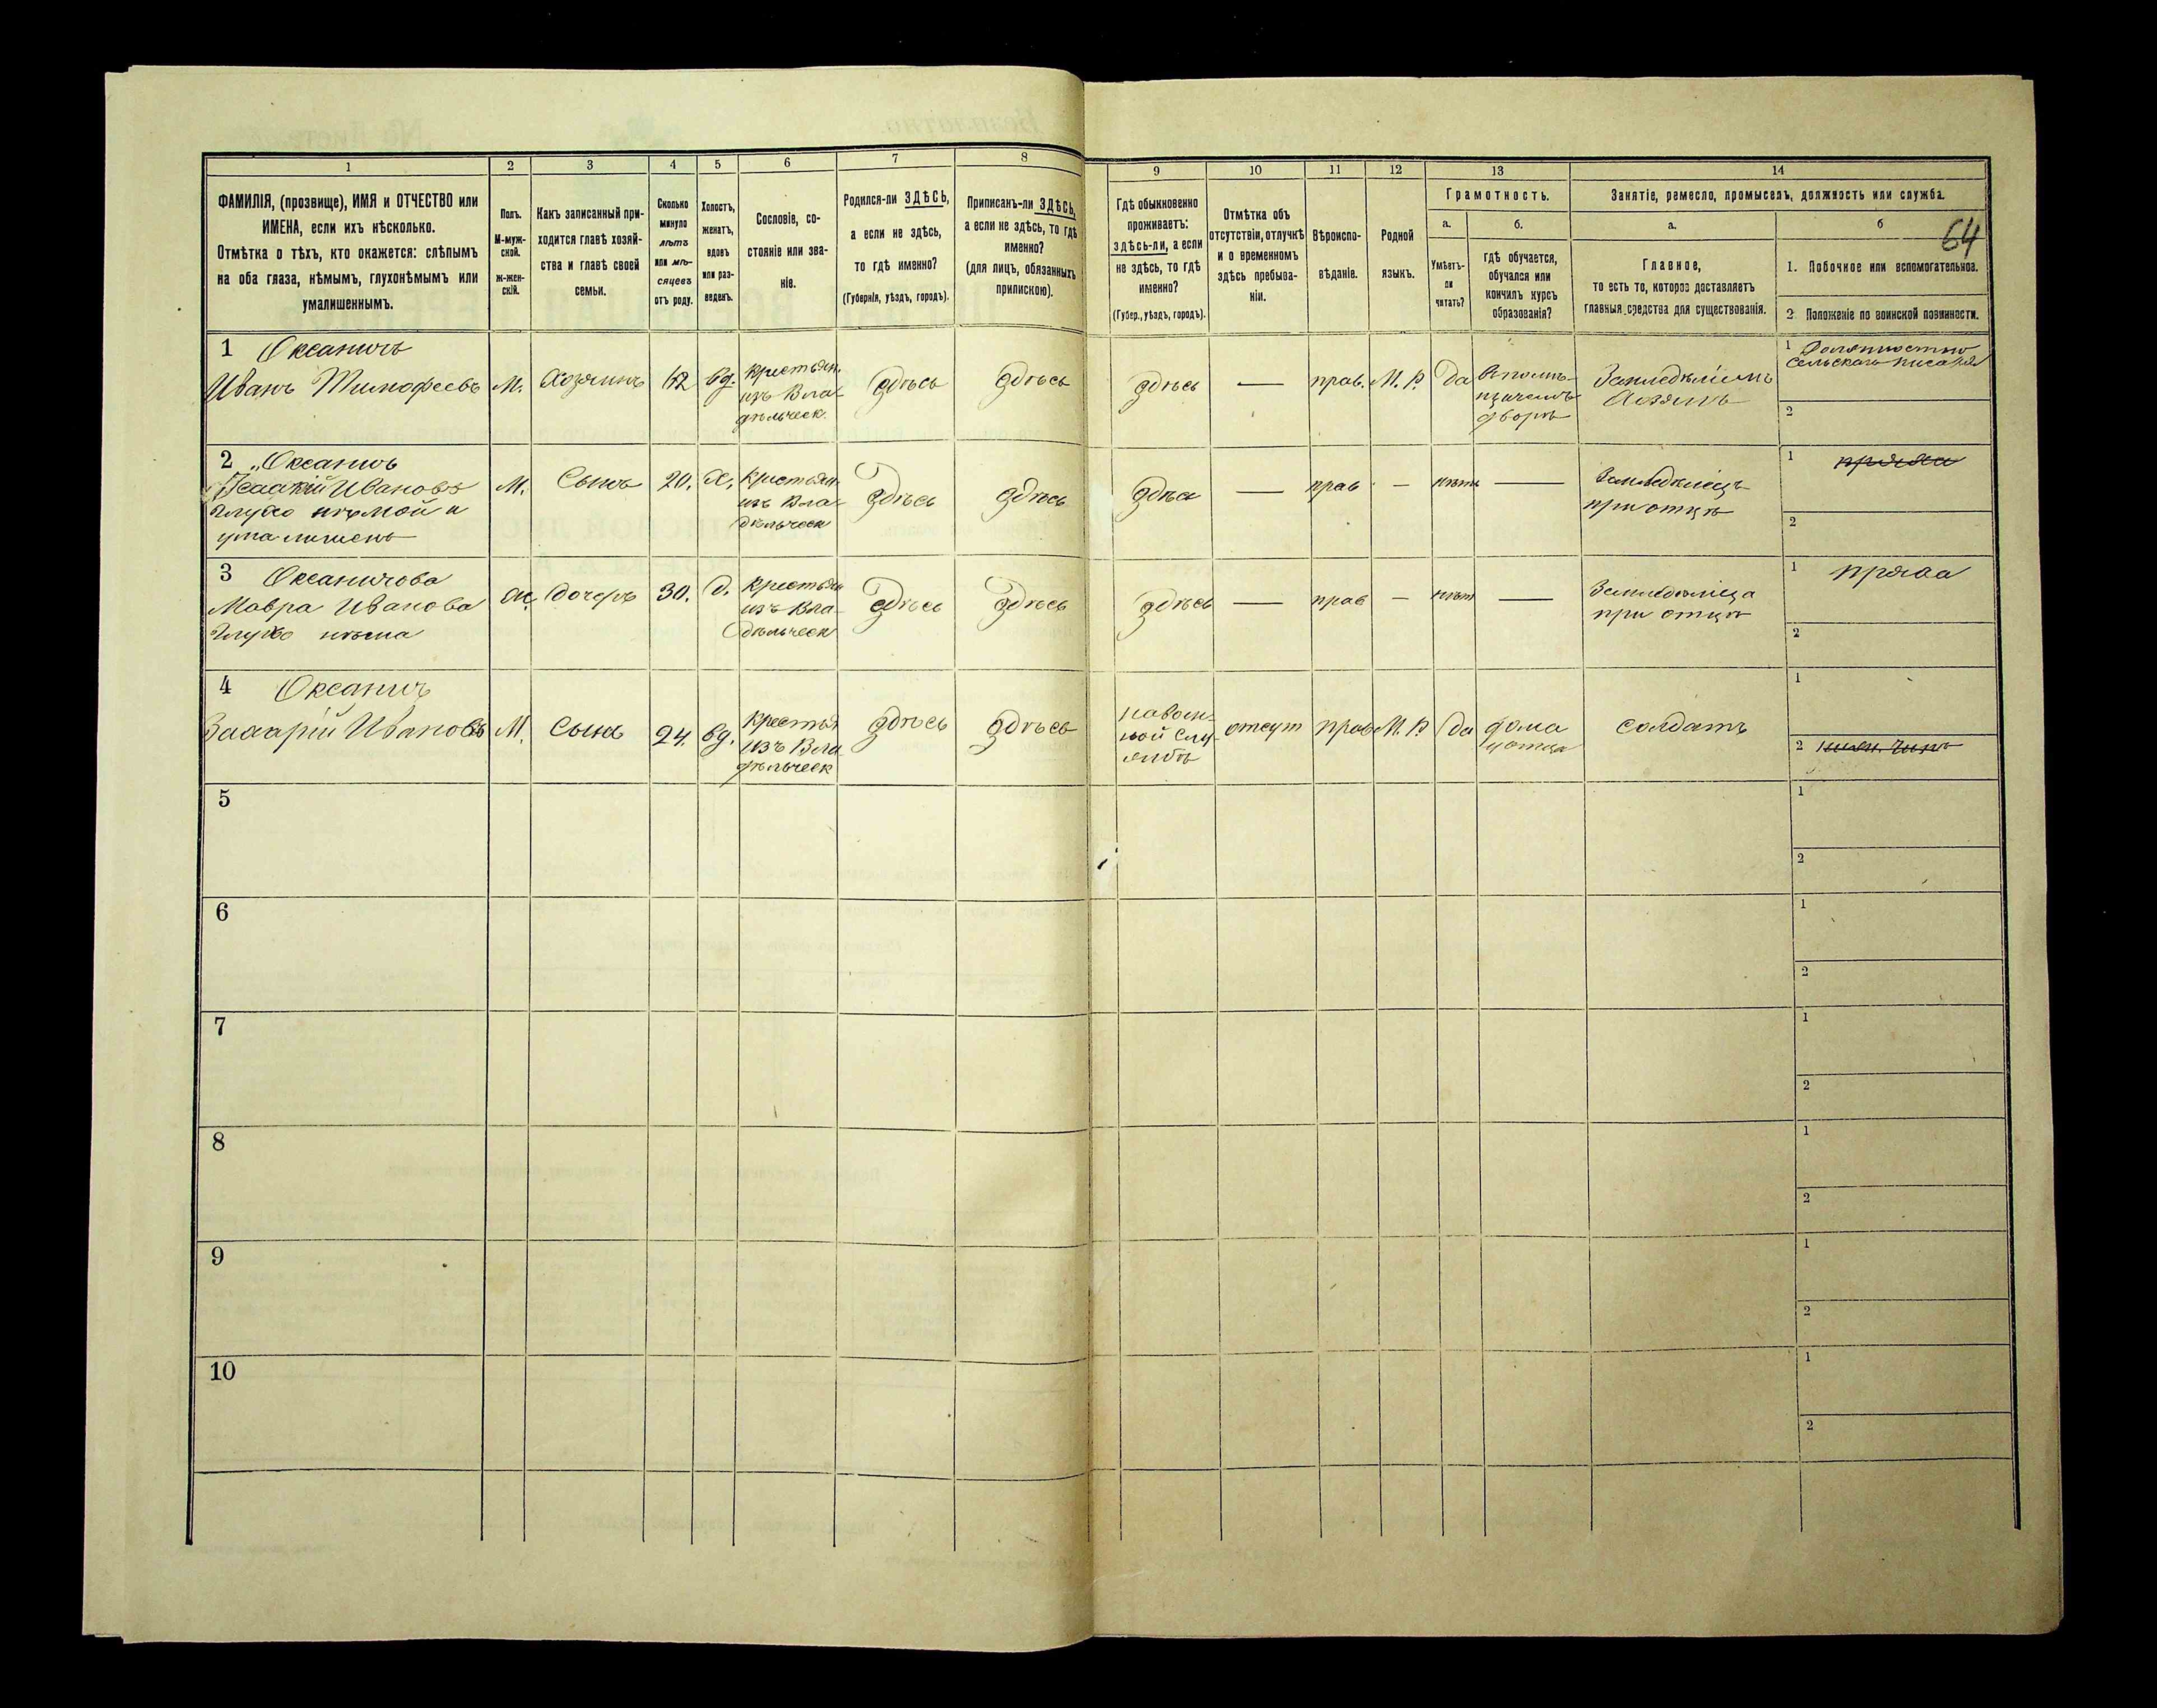 64
1 2 3 4 5 6 7 8 9 10 11 12 13 14
ФАМИЛІЯ, (прозвище), ИМЯ и ОТЧЕСТВО или
ИМЕНА, если ихъ нѣсколько.
Отмѣтка о тѣхъ, кто окажется: слѣпымъ
на оба глаза, нѣмымъ, глухонѣмымъ или
умалишеннымъ.
Полъ.
М-муж-
ской.
ж-жен-
скій.
Какъ записанный при-
ходится главѣ хозяй-
ства и главѣ своей
семьи.
Сколько
минуло
лѣтъ
или мѣ-
сяцевъ
отъ роду.
Холостъ,
женатъ,
вдовъ
или раз-
веденъ.
Сословіе, со-
стояніе или зва-
ніе.
Родился-ли ЗДѢСЬ,
а если не здѣсь,
то гдѣ именно?
(Губернія, уѣздъ, городъ).
Приписанъ-ли ЗДѢСЬ,
а если не здѣсь, то гдѣ
именно?
(для лицъ, обязанныхъ
припискою).
Гдѣ обыкновенно
проживаетъ:
здѣсь-ли, а если
не здѣсь, то гдѣ
именно?
(Губер., уѣздъ, городъ).
Отмѣтка объ
отсутствіи, отлучкѣ
и о временномъ
здѣсь пребыва-
ніи.
Вѣроиспо-
вѣданіе.
Родной
языкъ.
Грамотность.
а.
Умѣетъ-
ли
читать?
б.
гдѣ обучается,
обучался или
кончилъ курсъ
образованія?
Занятіе, ремесло, промыселъ, должность или служба.
а.
Главное,
то есть то, которое доставляетъ
главныя средства для существованія.
б
1. Побочное или вспомогательное.
2 Положеніе по воинской повинности.
1 Оксаничъ
Иванъ Тимофеевъ
М.
Хозяинъ
62
вд.
крестьян.
изъ Вла-
дѣльческ.
здѣсь
здѣсь
здѣсь
—
прав.
М. Р.
Да
дворѣ
Хозяинъ
1 Должностью
сельскаго писаря
2
2 „Оксаничъ
Исаакій Ивановъ
Глухо нѣмой и
ума лишенъ
М.
Сынъ
20.
Х.
крестьян.
изъ Вла-
дѣльческ
здѣсь
здѣсь
здѣсь
—
прав
-
нѣтъ
—
при отцѣ
1
2
3 Оксаничова
Мавра Иванова
Глухо нѣма
Ж.
дочерь
30.
Д.
крестьян
изъ Вла-
дѣльческ
здѣсь
здѣсь
здѣсь
—
прав
-
нѣт
—
при отцѣ
1 пряха
2
4 Оксанич
Захарій Ивановъ
М.
Сынъ
24.
вд.
крестья
изъ Вла
дѣльческ
здѣсь
здѣсь
на воен-
ной слу-
жбѣ
отсут
прав
М. Р
да
дома
у отца
солдатъ
1
2
5 1
2
6 1
2
7 1
2
8 1
2
9 1
2
10 1
2